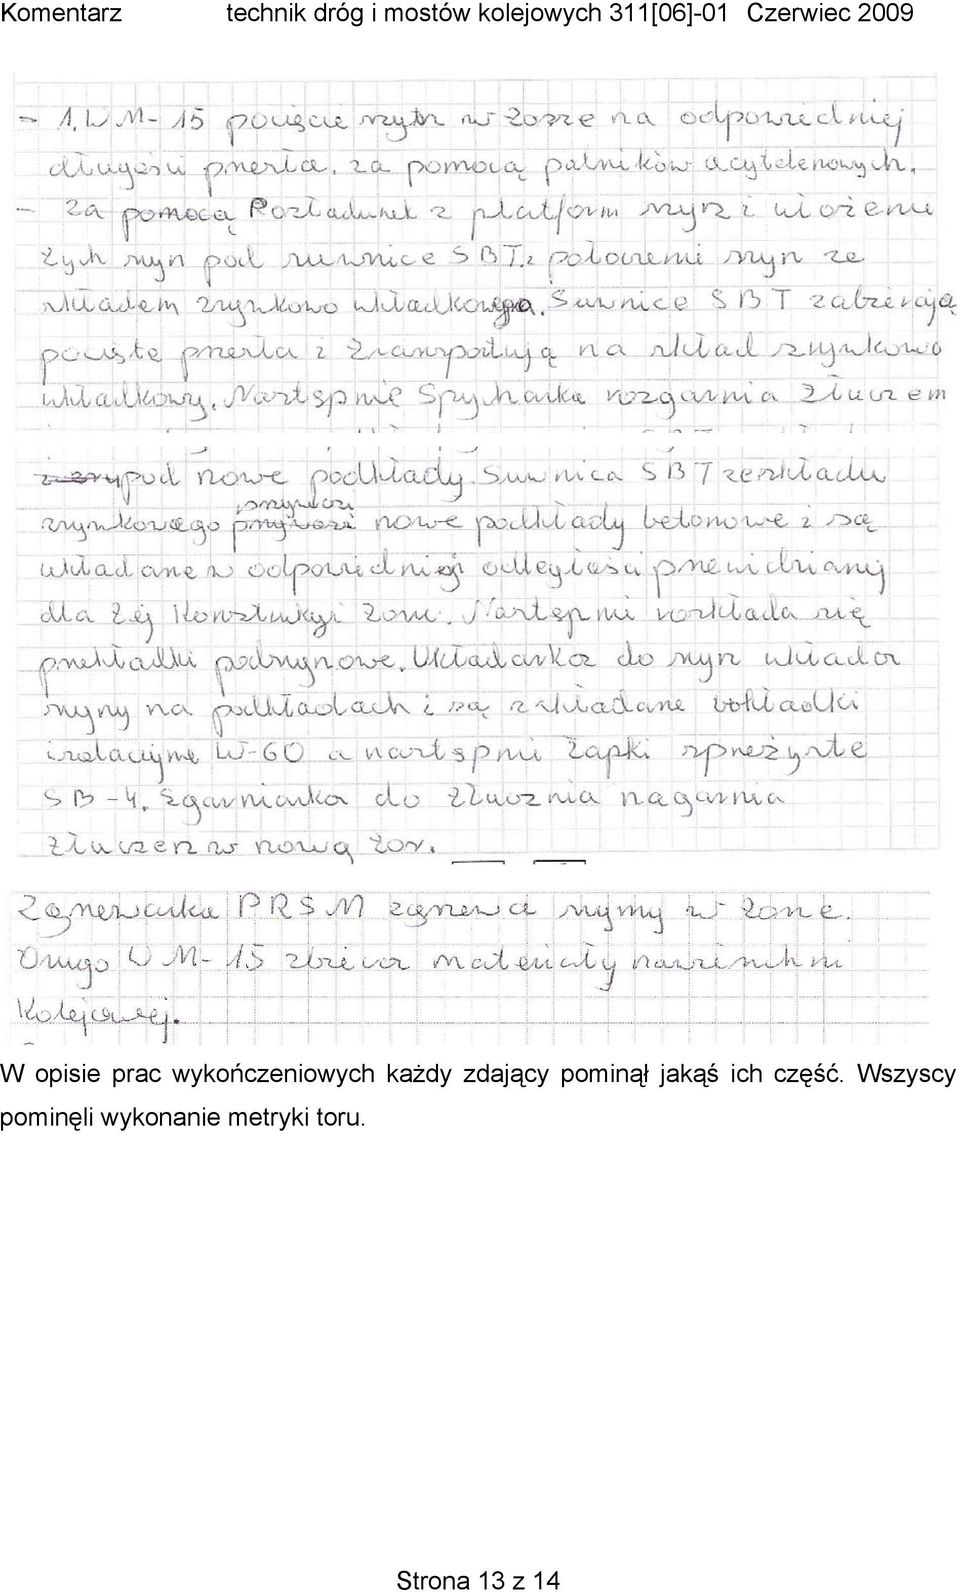 Komentarz technik dróg i mostów kolejowych 311[06]-01 Czerwiec 2009
- 1. WM-15 pocięcie szyn w torze na odpowiedniej
długości przęsła. za pomocą palników acytelenowych.
- za pomocą Rozładunek z platform szyn i ułożeniu
tych szyn pod suwnice SBT. i położeniu szyn ze
składem wkładkowego. Suwnice SBT zabierają
pocięte przęsła i transportują na skład
wkładkowy. Nastspnie Spycharka rozgarnia tłuczeń
pod nowe podkłady. Suwnica SBT ze składu
przywozi
nowe podkłady betonowe i są
układane w odpowiedniej odległości przewidzianej
dla tej Konstrukcji toru. Nastspni rozkłada się
przekładki podszynowe. Układarka do szyn układa
szyny na podkładach i są zakładane wkładki
izolacyjne W-60 a nastspni łapki sprężyste
SB-4. Zgarniarka do tłucznia nagarnia
tłuczeń w nową tor.
Zgrzewarka PRSM zgrzewa szyny w torze.
Drugo WM-15 zbiera materiały nawierzchni
Kolejowej.
W opisie prac wykończeniowych każdy zdający pominął jakąś ich część. Wszyscy
pominęli wykonanie metryki toru.
Strona 13 z 14